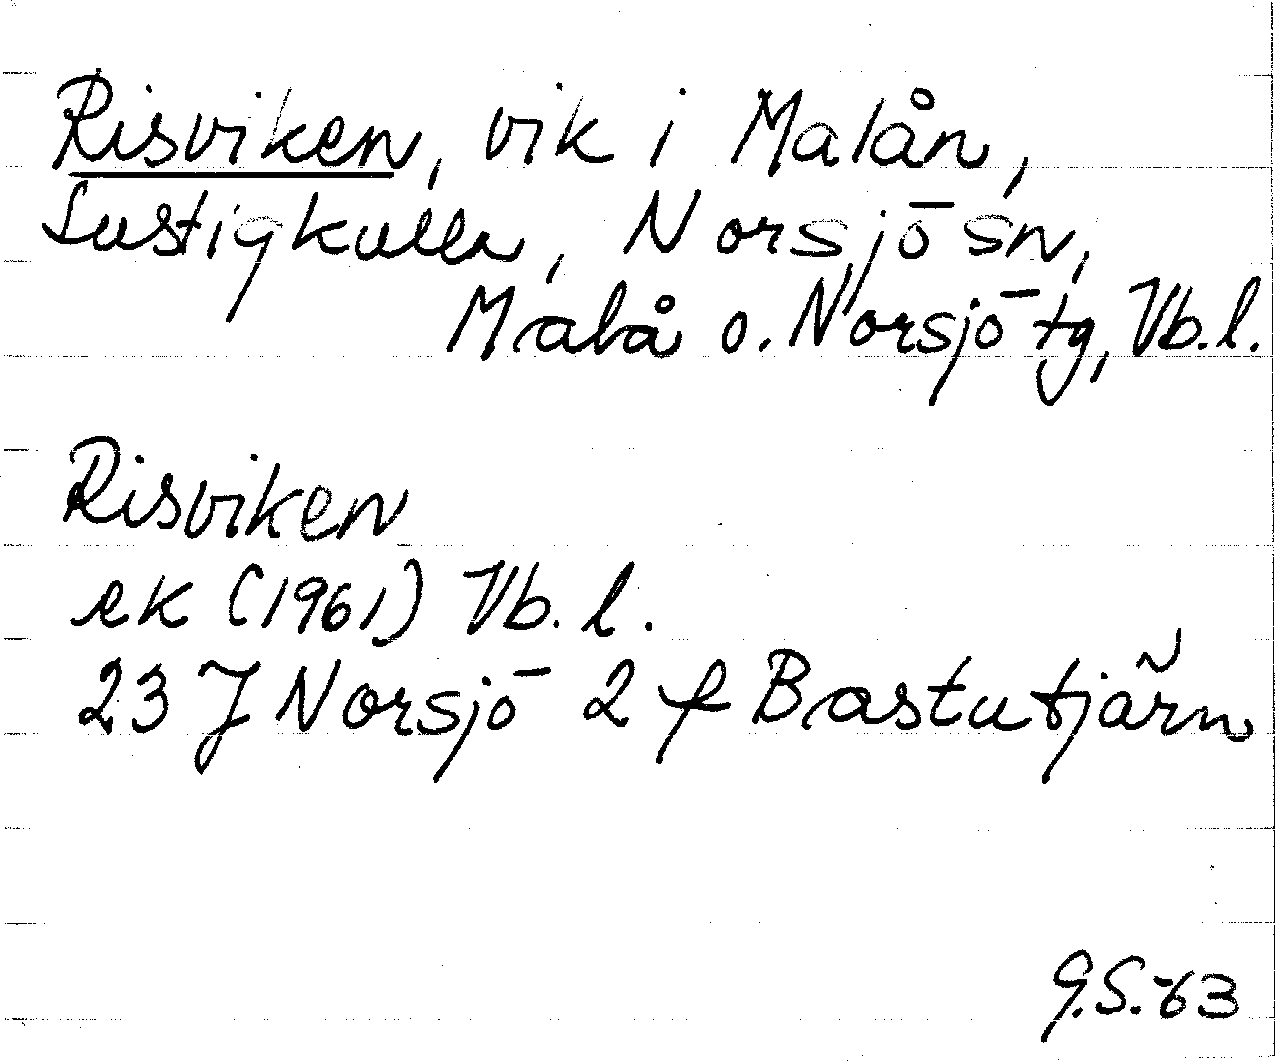 Risviken, vik i Malån,
Lustigkulla, Norsjö sn,
Malå o. Norsjö tg, Vb. l.
Risviken
ek (1961) Vb. l.
23 J Norsjö 2 f Bastutjärn
G.S.-63